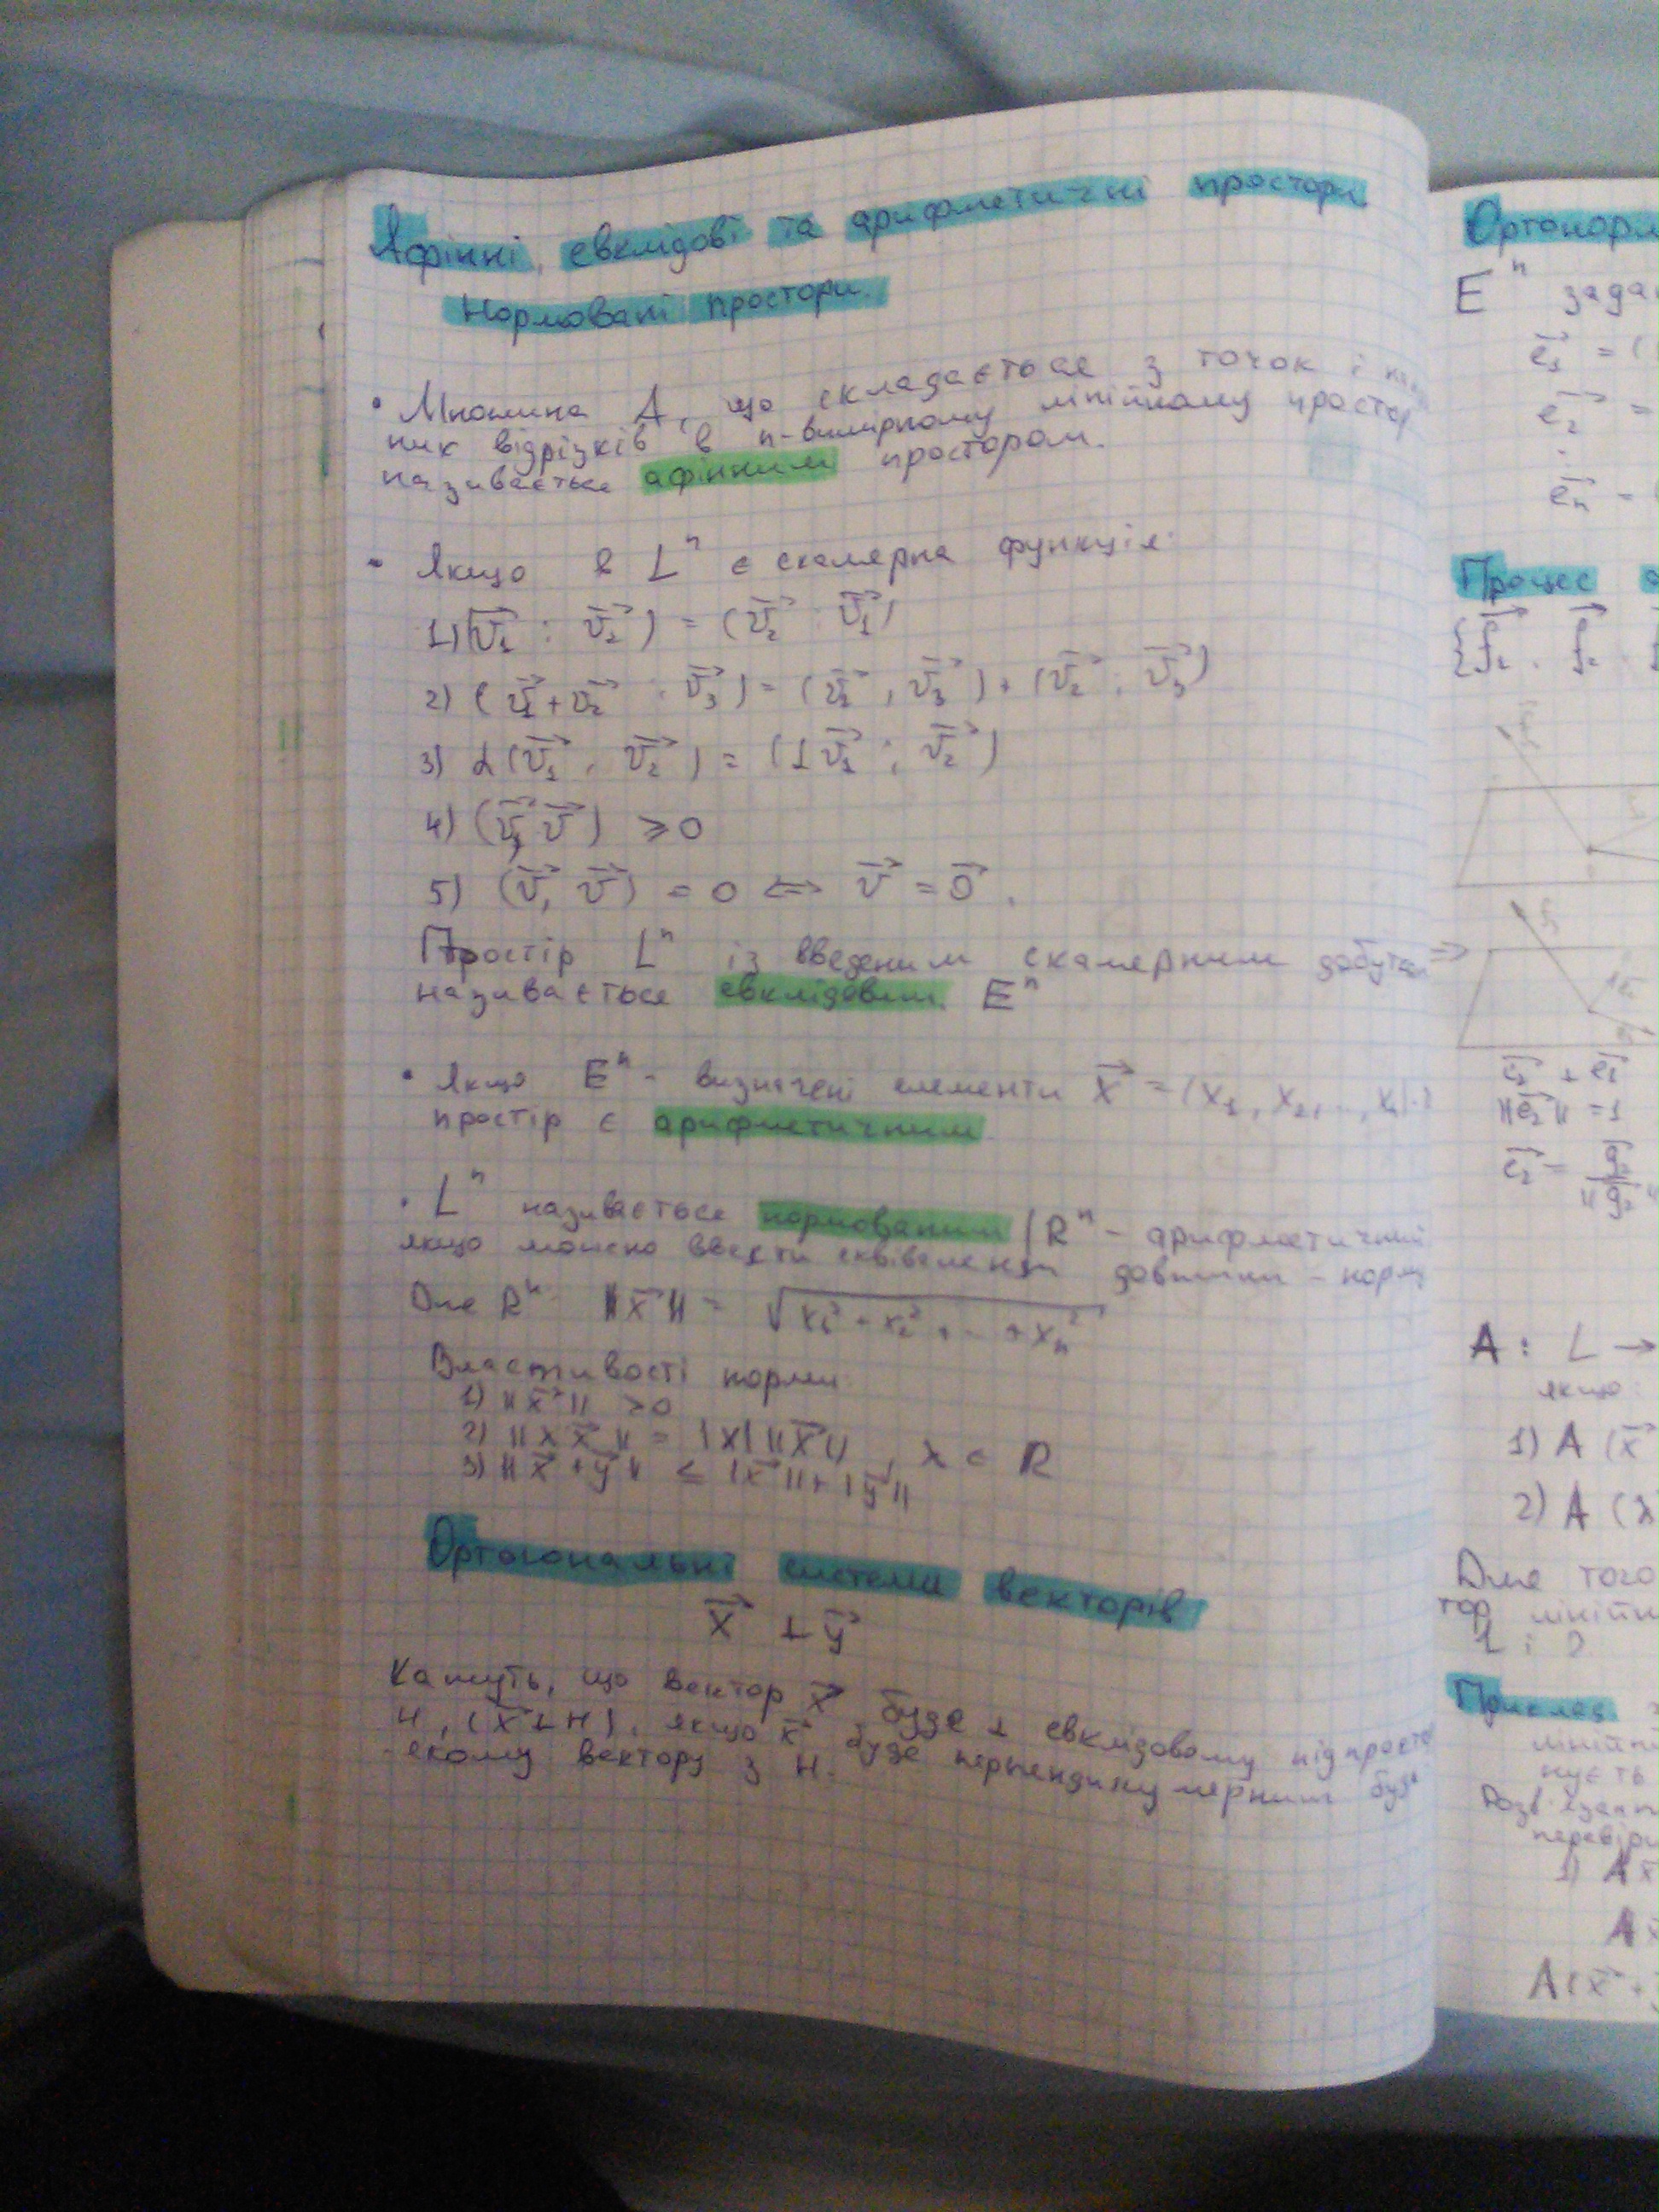 Афінні, евклідові та арифметичні простори
Нормовані простори.
• Множина А, що складається з точок і
них відрізків в n-вимірному лінійному простор
називається афінним простором.
• Якщо в Lⁿ є скалярна функція:
1) (v₁⃗ ; v₂⃗) = (v₂⃗ ; v₁⃗)
2) (v₁⃗ + v₂⃗ ; v₃⃗) = (v₁⃗, v₃⃗) + (v₂⃗ ; v₃⃗)
3) α(v₁⃗, v₂⃗) = (αv₁⃗ ; v₂⃗)
4) (v⃗, v⃗) ≥ 0
5) (v⃗, v⃗) = 0 ⟺ v⃗ = 0⃗.
Простір Lⁿ із введеним скалярним добутк
називається евклідовим Eⁿ
• Якщо Eⁿ - визначені елементи x⃗ = (x₁, x₂, ..., xₙ)
простір є арифметичним.
• Lⁿ називається нормованим / Rⁿ - арифметичний
якщо можна ввести еквівалент довжини - норм
Для Rⁿ ‖x⃗‖ = √x₁² + x₂² + ... + xₙ²
Властивості норми:
1) ‖x⃗‖ ≥ 0
2) ‖λx⃗‖ = |λ|‖x⃗‖, λ ∈ R
3) ‖x⃗ + y⃗‖ ≤ ‖x⃗‖ + ‖y⃗‖
Ортогональні системи векторів
x⃗ ⊥ y⃗
Кажуть, що вектор x⃗ буде ⊥ евклідовому підпросто
H, (x⃗ ⊥ H), якщо x⃗ буде перпендикулярним будь
якому вектору з H.
Ортонорм
Eⁿ зада
e₁⃗ = (
e₂⃗ =
eₙ⃗ =
Процес
⇒
‖e₂⃗‖ = 1
e₂⃗ = g₂⃗ / ‖g₂⃗‖
A: L →
якщо:
1) A (x⃗
2) A (λ
Для того
тор лінійн
1 і 2
Приклад
ліній
нуєть
Розв'язан
перевір
1) A x⃗
A x⃗
A(x⃗ +